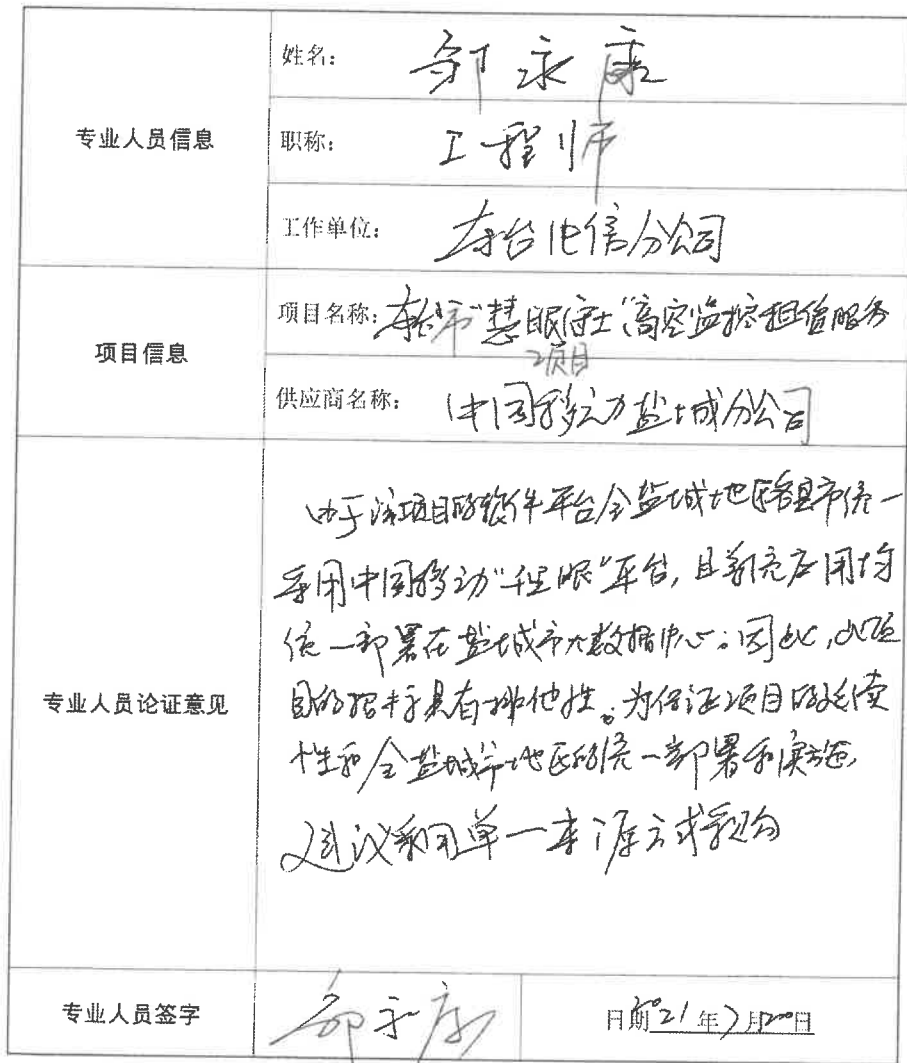 专业人员信息
姓名：邹永康
职称：工程师
工作单位：东台电信分公司
项目信息
项目名称：东台市"慧眼守土"高空监控租赁服务
项目
供应商名称：中国移动盐城分公司
专业人员论证意见
由于该项目的软件平台全盐城地区各县市统一
采用中国移动"千里眼"平台，且新亮应用均
统一部署在盐城市大数据中心。因此，此项
目的招标具有排他性。为保证项目的延续
性和全盐城市地区的统一部署和实施，
建议采用单一来源方式采购
专业人员签字
邹永康
日期2021年7月20日